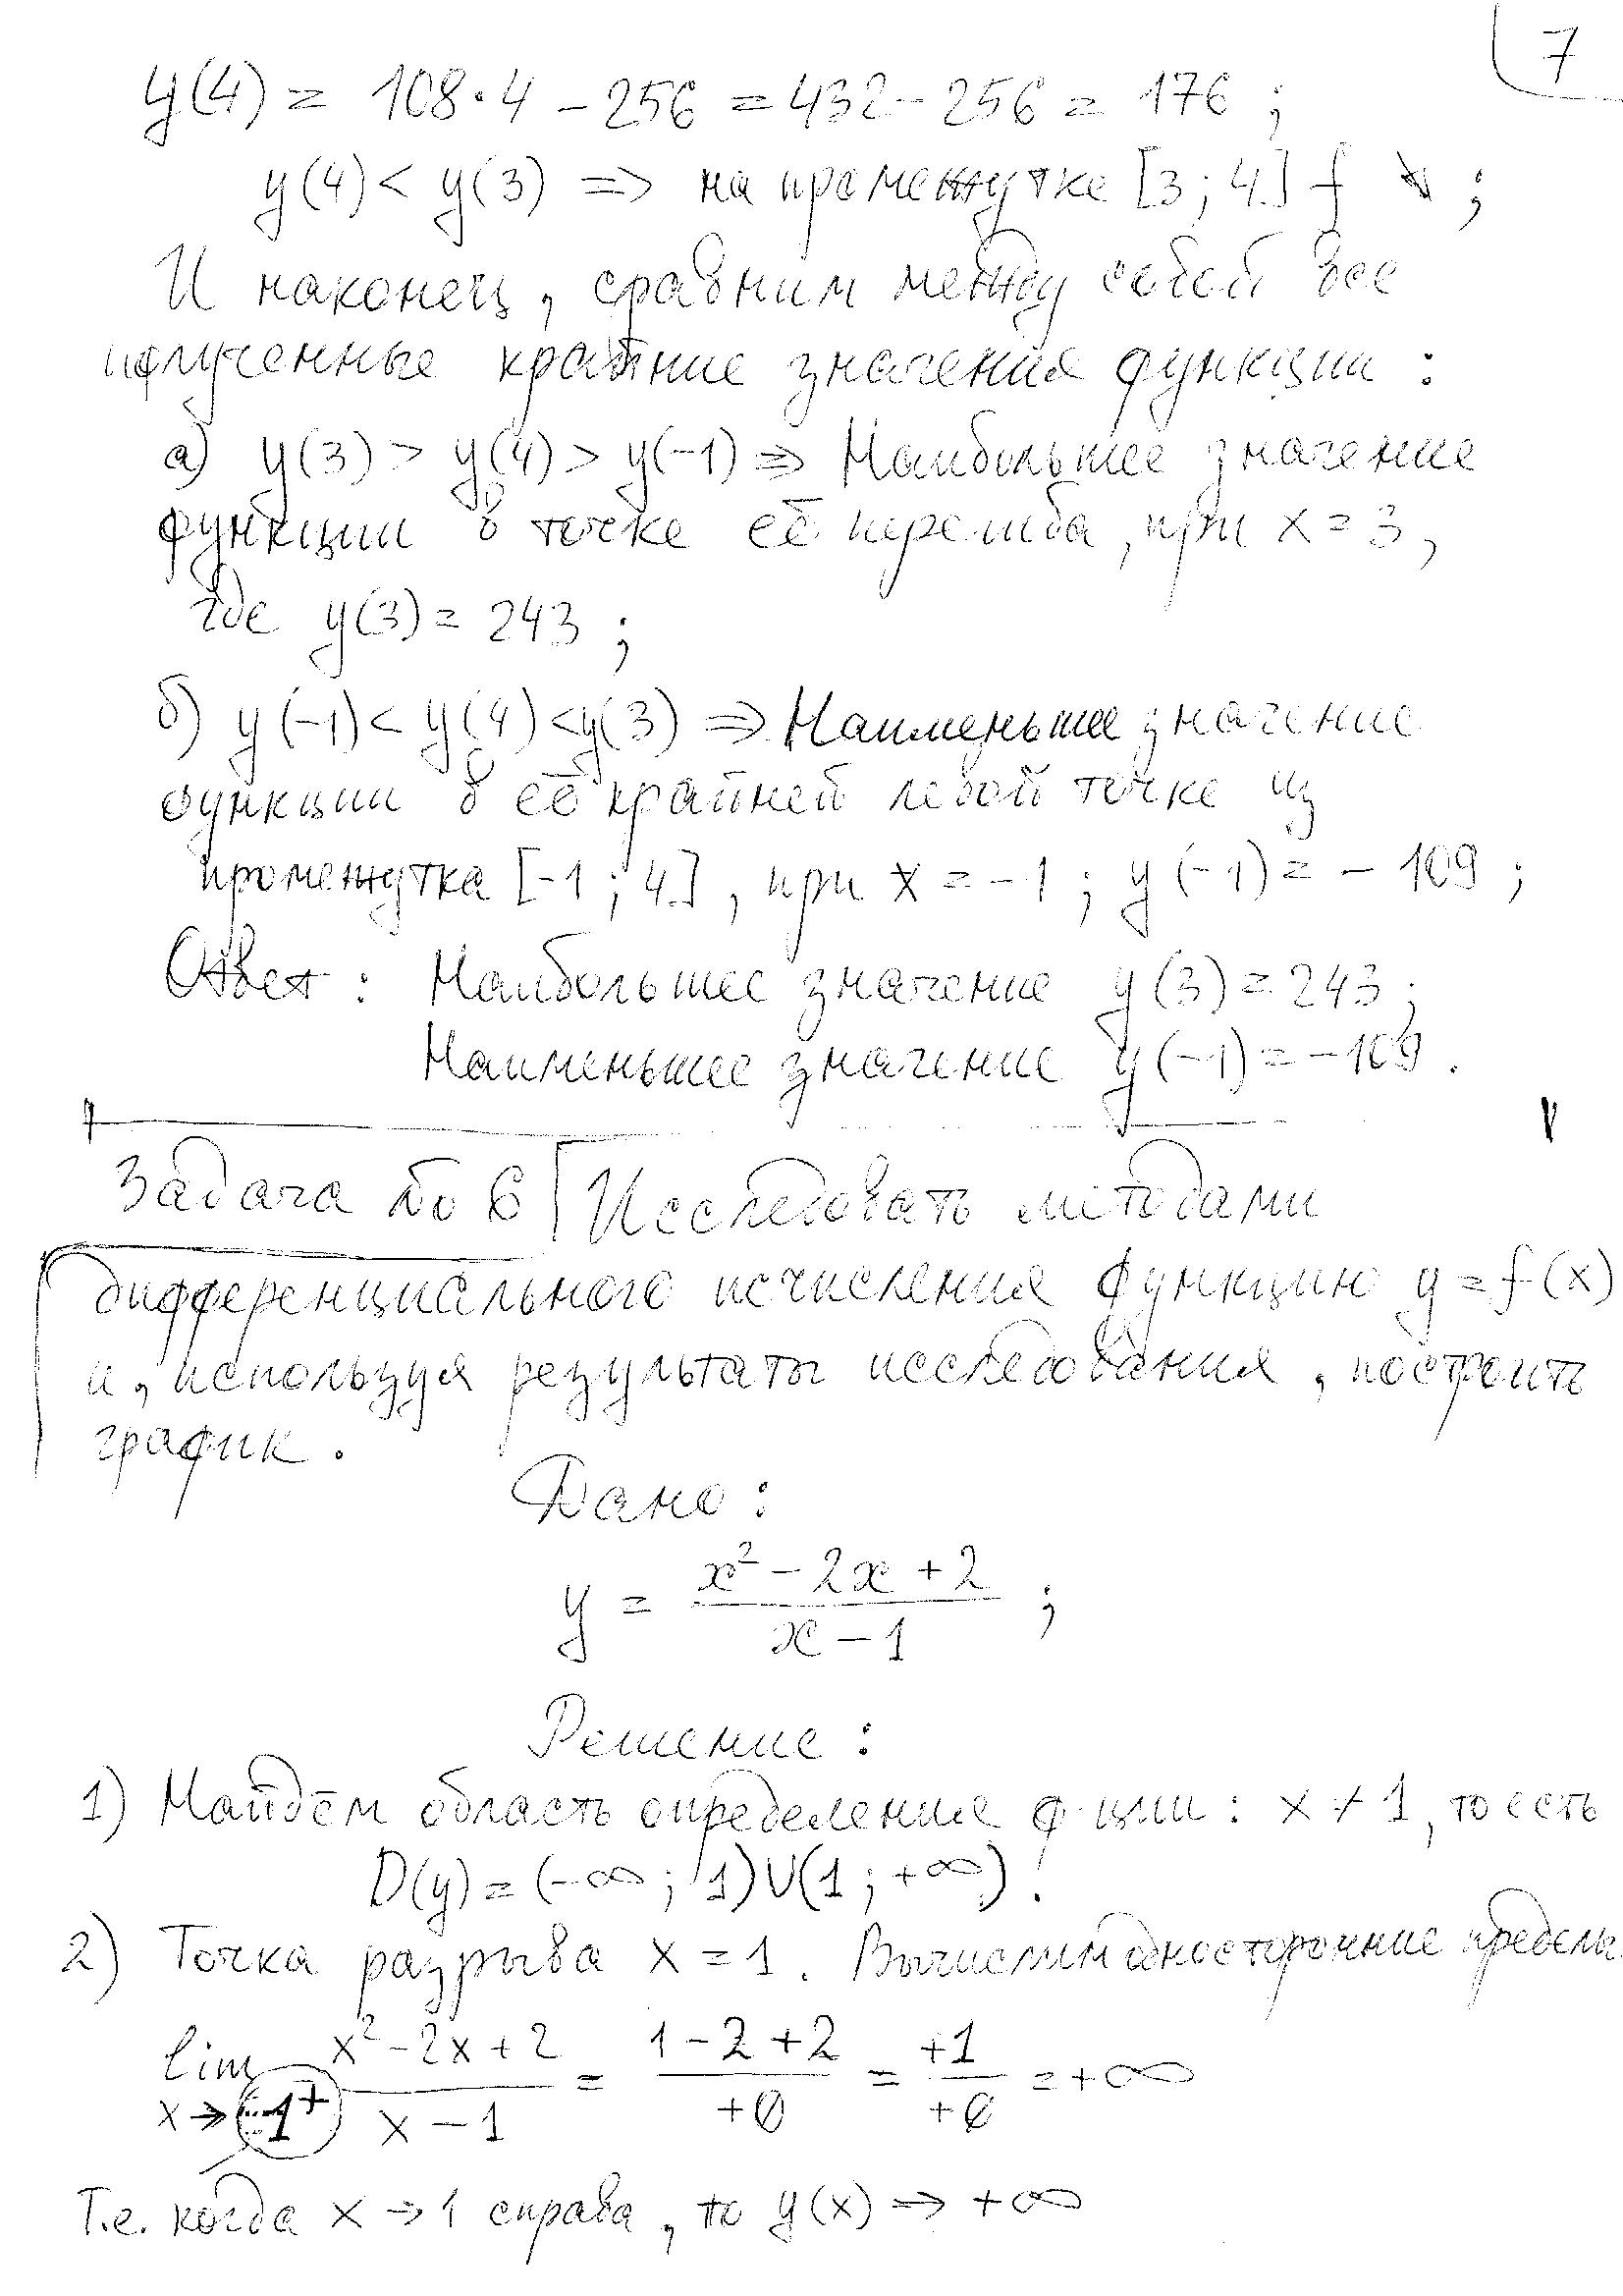 7
y(4) = 108·4 - 256 = 432 - 256 = 176 ;
y(4) < y(3) => на промежутке [3; 4] f ↘ ;
И наконец, сравним между собой все
полученные крайние значения функции :
а) y(3) > y(4) > y(-1) => Наибольшее значение
функции в точке её перегиба, при x = 3,
где y(3) = 243 ;
б) y(-1) < y(4) < y(3) => Наименьшее значение
функции в её крайней левой точке из
промежутка [-1 ; 4], при x = -1 ; y(-1) = - 109 ;
Ответ : Наибольшее значение y(3) = 243 ;
Наименьшее значение y(-1) = -109 .
Задача № 6 Исследовать методами
дифференциального исчисления функцию y = f(x)
и, используя результаты исследования, построить
график .
Дано :
y = (x² - 2x + 2) / (x - 1) ;
Решение :
1) Найдём область определение ф-ции : x ≠ 1, то есть
D(y) = (-∞ ; 1) U (1 ; +∞) .
2) Точка разрыва x = 1. Вычислим односторонние пределы
lim x→1⁺ (x² - 2x + 2) / (x - 1) = (1 - 2 + 2) / +0 = +1 / +0 = +∞
Т.е. когда x → 1 справа, то y(x) → +∞